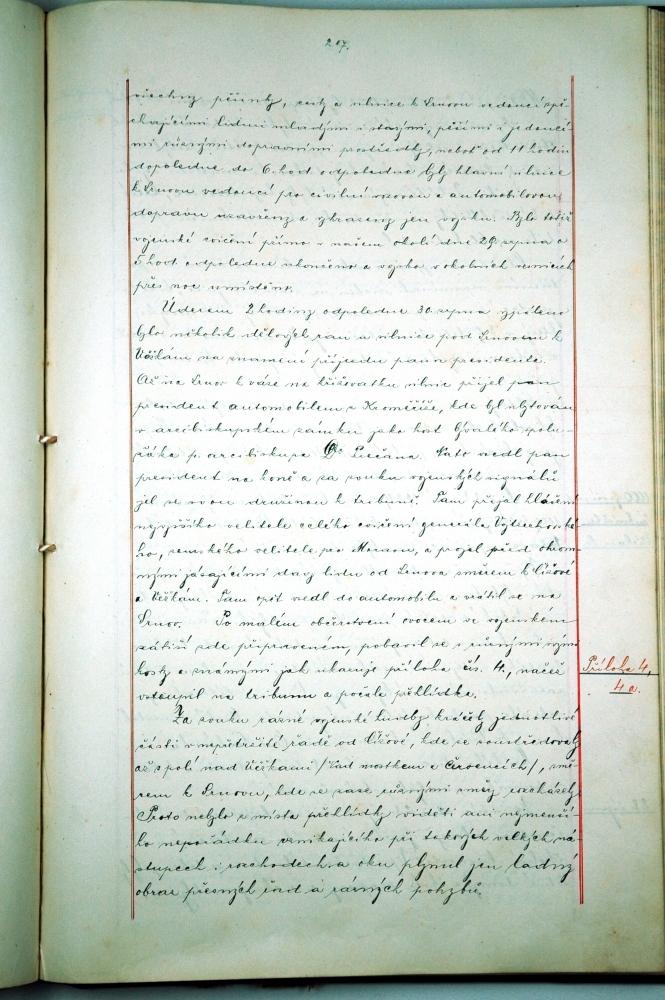 207.
všechny pěšinky, cesty a silnice k Srnovu vedoucí spě-
chajícími lidmi mladými i starými, pěšími i jedoucí-
mi různými dopravními prostředky, neboť od 11 hodin
dopoledne do 6. hod odpoledne byly hlavní silnice
k Srnovu vedoucí pro civilní vozovou a automobilovou
dopravu uzavřeny a vyhrazeny jen vojsku. Bylo totiž
vojenské cvičení přímo v našem okolí dne 29. srpna o
5 hod odpoledne ukončeno a vojsko v okolních vesnicích
přes noc umístěno.
Úderem 2 hodiny odpoledne 30. srpna vypáleno
bylo několik dělových ran u silnice pod Srnovem k
Věžkám na znamení příjezdu pana presidenta.
Až na Srnov k váze na křižovatku silnic přijel pan
president automobilem z Kroměříže, kde byl ubytován
v arcibiskupském zámku jako host bývalého spolu-
žáka p. arcibiskupa Dr Prečana. Nato vsedl pan
president na koně a za zvuku vojenských signálů
jel se svou družinou k tribuně. Tam přijal hlášení
nejvyššího velitele celého cvičení generála Vojtěchovské-
ho, zemského velitele pro Moravu, a projel před ohrom-
nými jásajícími davy lidu od Srnova směrem k Čížové
a Věžkám. Tam opět vsedl do automobilu a vrátil se na
Srnov. Po malém občerstvení ovocem ve vojenském
zátiší zde připraveném, pobavil se s různými svými
hosty a známými jak ukazuje příloha čís. 4., načež
vstoupil na tribunu a počala přehlídka.
Příloha 4,
4 a.
Za zvuku rázné vojenské hudby kráčely jednotlivé
části v nepřetržité řadě od Čížové, kde se soustřeďovaly
až v poli nad Věžkami /Nad mostkem a Červencích/, smě-
rem k Srnovu, kde se zase různými směry rozcházely.
Proto nebylo z místa přehlídky viděti ani nejmenší-
ho nepořádku vznikajícího při takových velkých ná-
stupech i rozchodech a oku plynul jen ladný
obraz přesných řad a rázných pohybů.